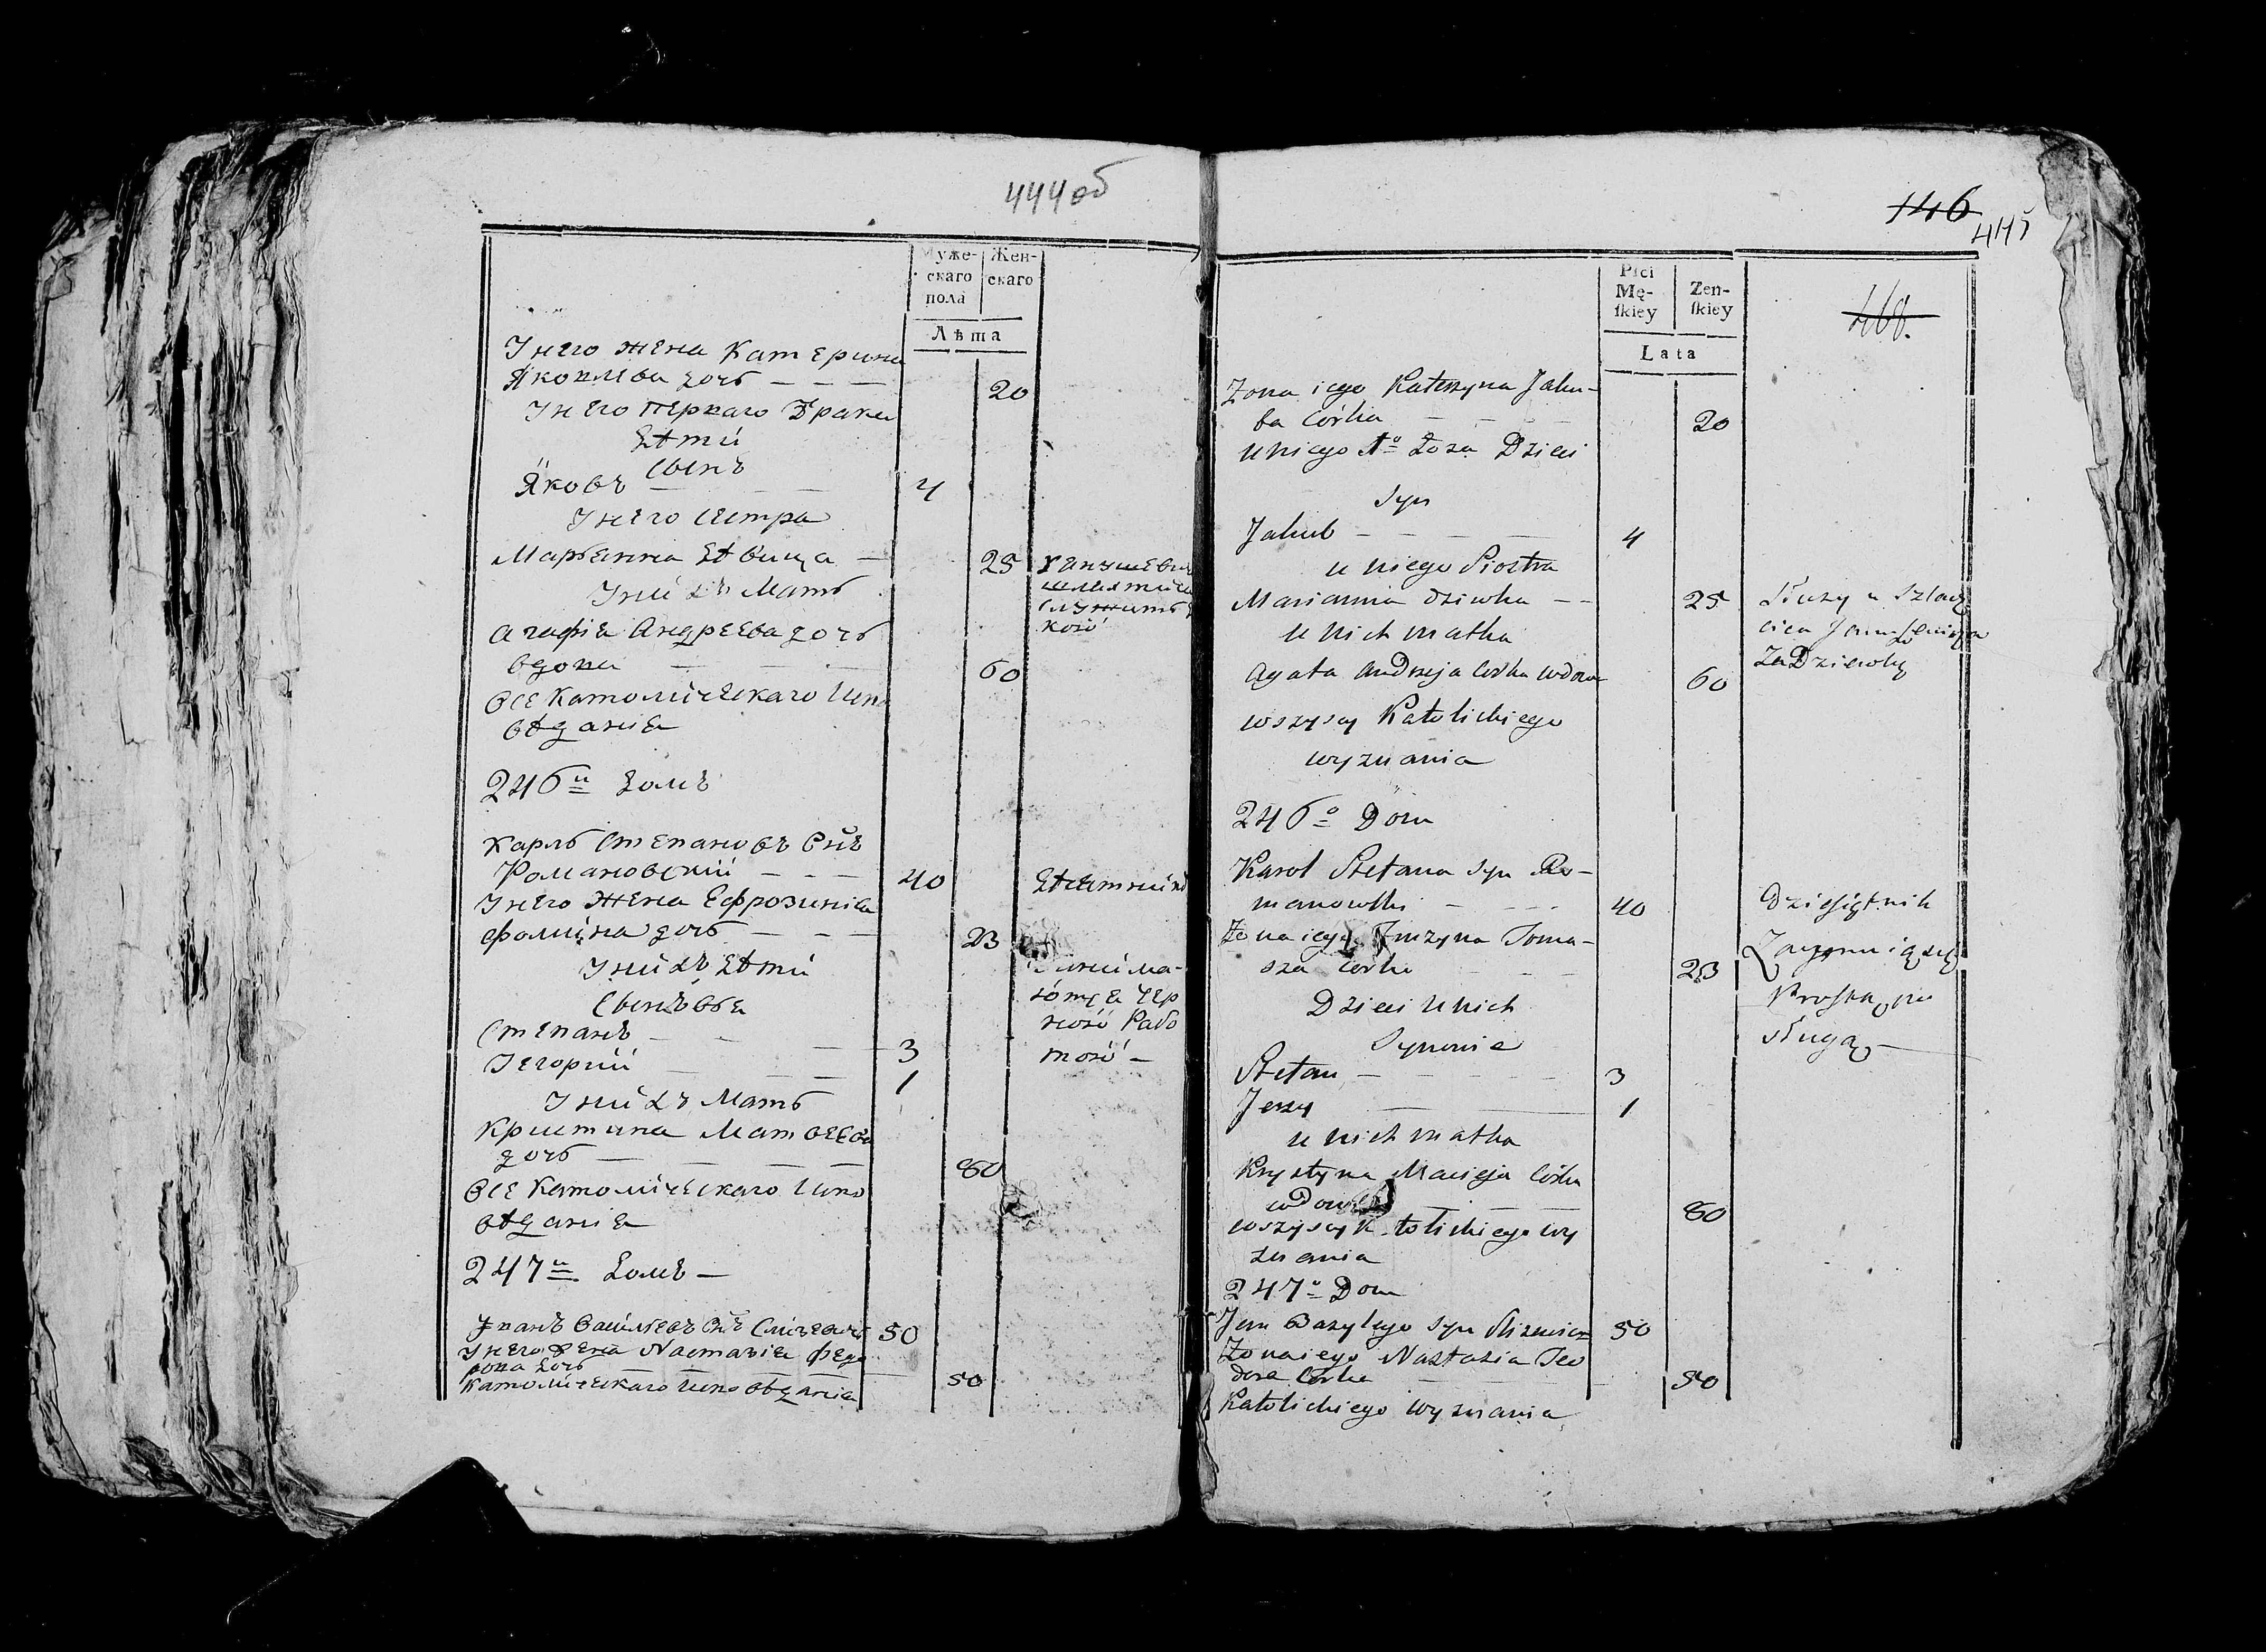 444об
Муже-
скаго
пола
Жен-
скаго
Лѣта
У него жена Катерина
Яковлева дочь — — — 20
У него первого брака
дѣти
Сынъ
Яковъ — — — 4
У него сестра
Марьянна дѣвица — 25
У нихъ мать
Агафія Андреева дочь
вдова — — — 60
Все Католическаго испо
вѣданія
246й домъ
Карль Степановъ снъ
Романовскій — — — 40
У него жена Ефрозинія
Фомина дочь — — — 23
У нихъ дѣти
Сыновья
Степанъ — — — 3
Іегорий — — — 1
У нихъ мать
Кристина Матвеева
дочь — — — 80
Все Католическаго испо
вѣданія
247й домъ —
Иванъ Васильевъ снъ Слизевичъ 50
У него жена Настазія Федо
рова дочь — — — 50
Католическаго исповѣданія
шляхтича
служитъ
ною
нима-
ется чер
ною рабо
тою —
146
445
468.
Płci
Mę-
ſkiey
Zen-
ſkiey
Lata
Zona iego Katerzyna Jaku-
ba Corka — — — 20
u niego 1o Łoża Dzieci
Syn
Jakub — — — 4
u niego Siostra
Marianna dziwka — — 25
u nich matka
Agata Andrzeja Corka wdowa 60
wszyscy Katolickiego
wyznania
Służy u Szlach
cica
Za Dziewkę
246o Dom
Karol Stefana Syn Ro-
manowski — — — 40
Dziesiętnik
Zona iego Toma-
sza Corka — — 23
Dzieci u nich
Synowie
Stefan — — — 3
Jerzy — — — 1
u nich matka
Krystyna Macieja Corka
wdowa — — — 80
wszyscy K tolickiego wy
znania
Prostą
sługą —
247o Dom
Jan Bazylego Syn Slizewicz 50
Zona iego Nastazia Teo
dora Corka — 50
Katolickiego wyznania